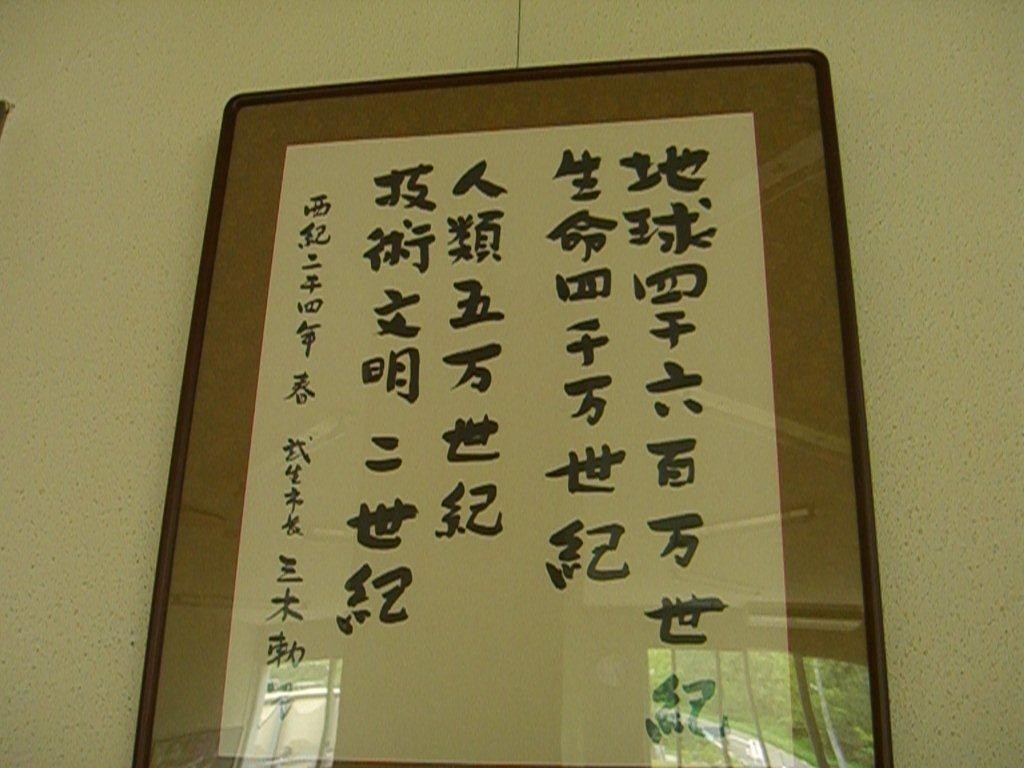 地球四千六百万世紀
生命四千万世紀
人類五万世紀
技術文明 二世紀
西紀二千四年 春 武生市長 三木勅男